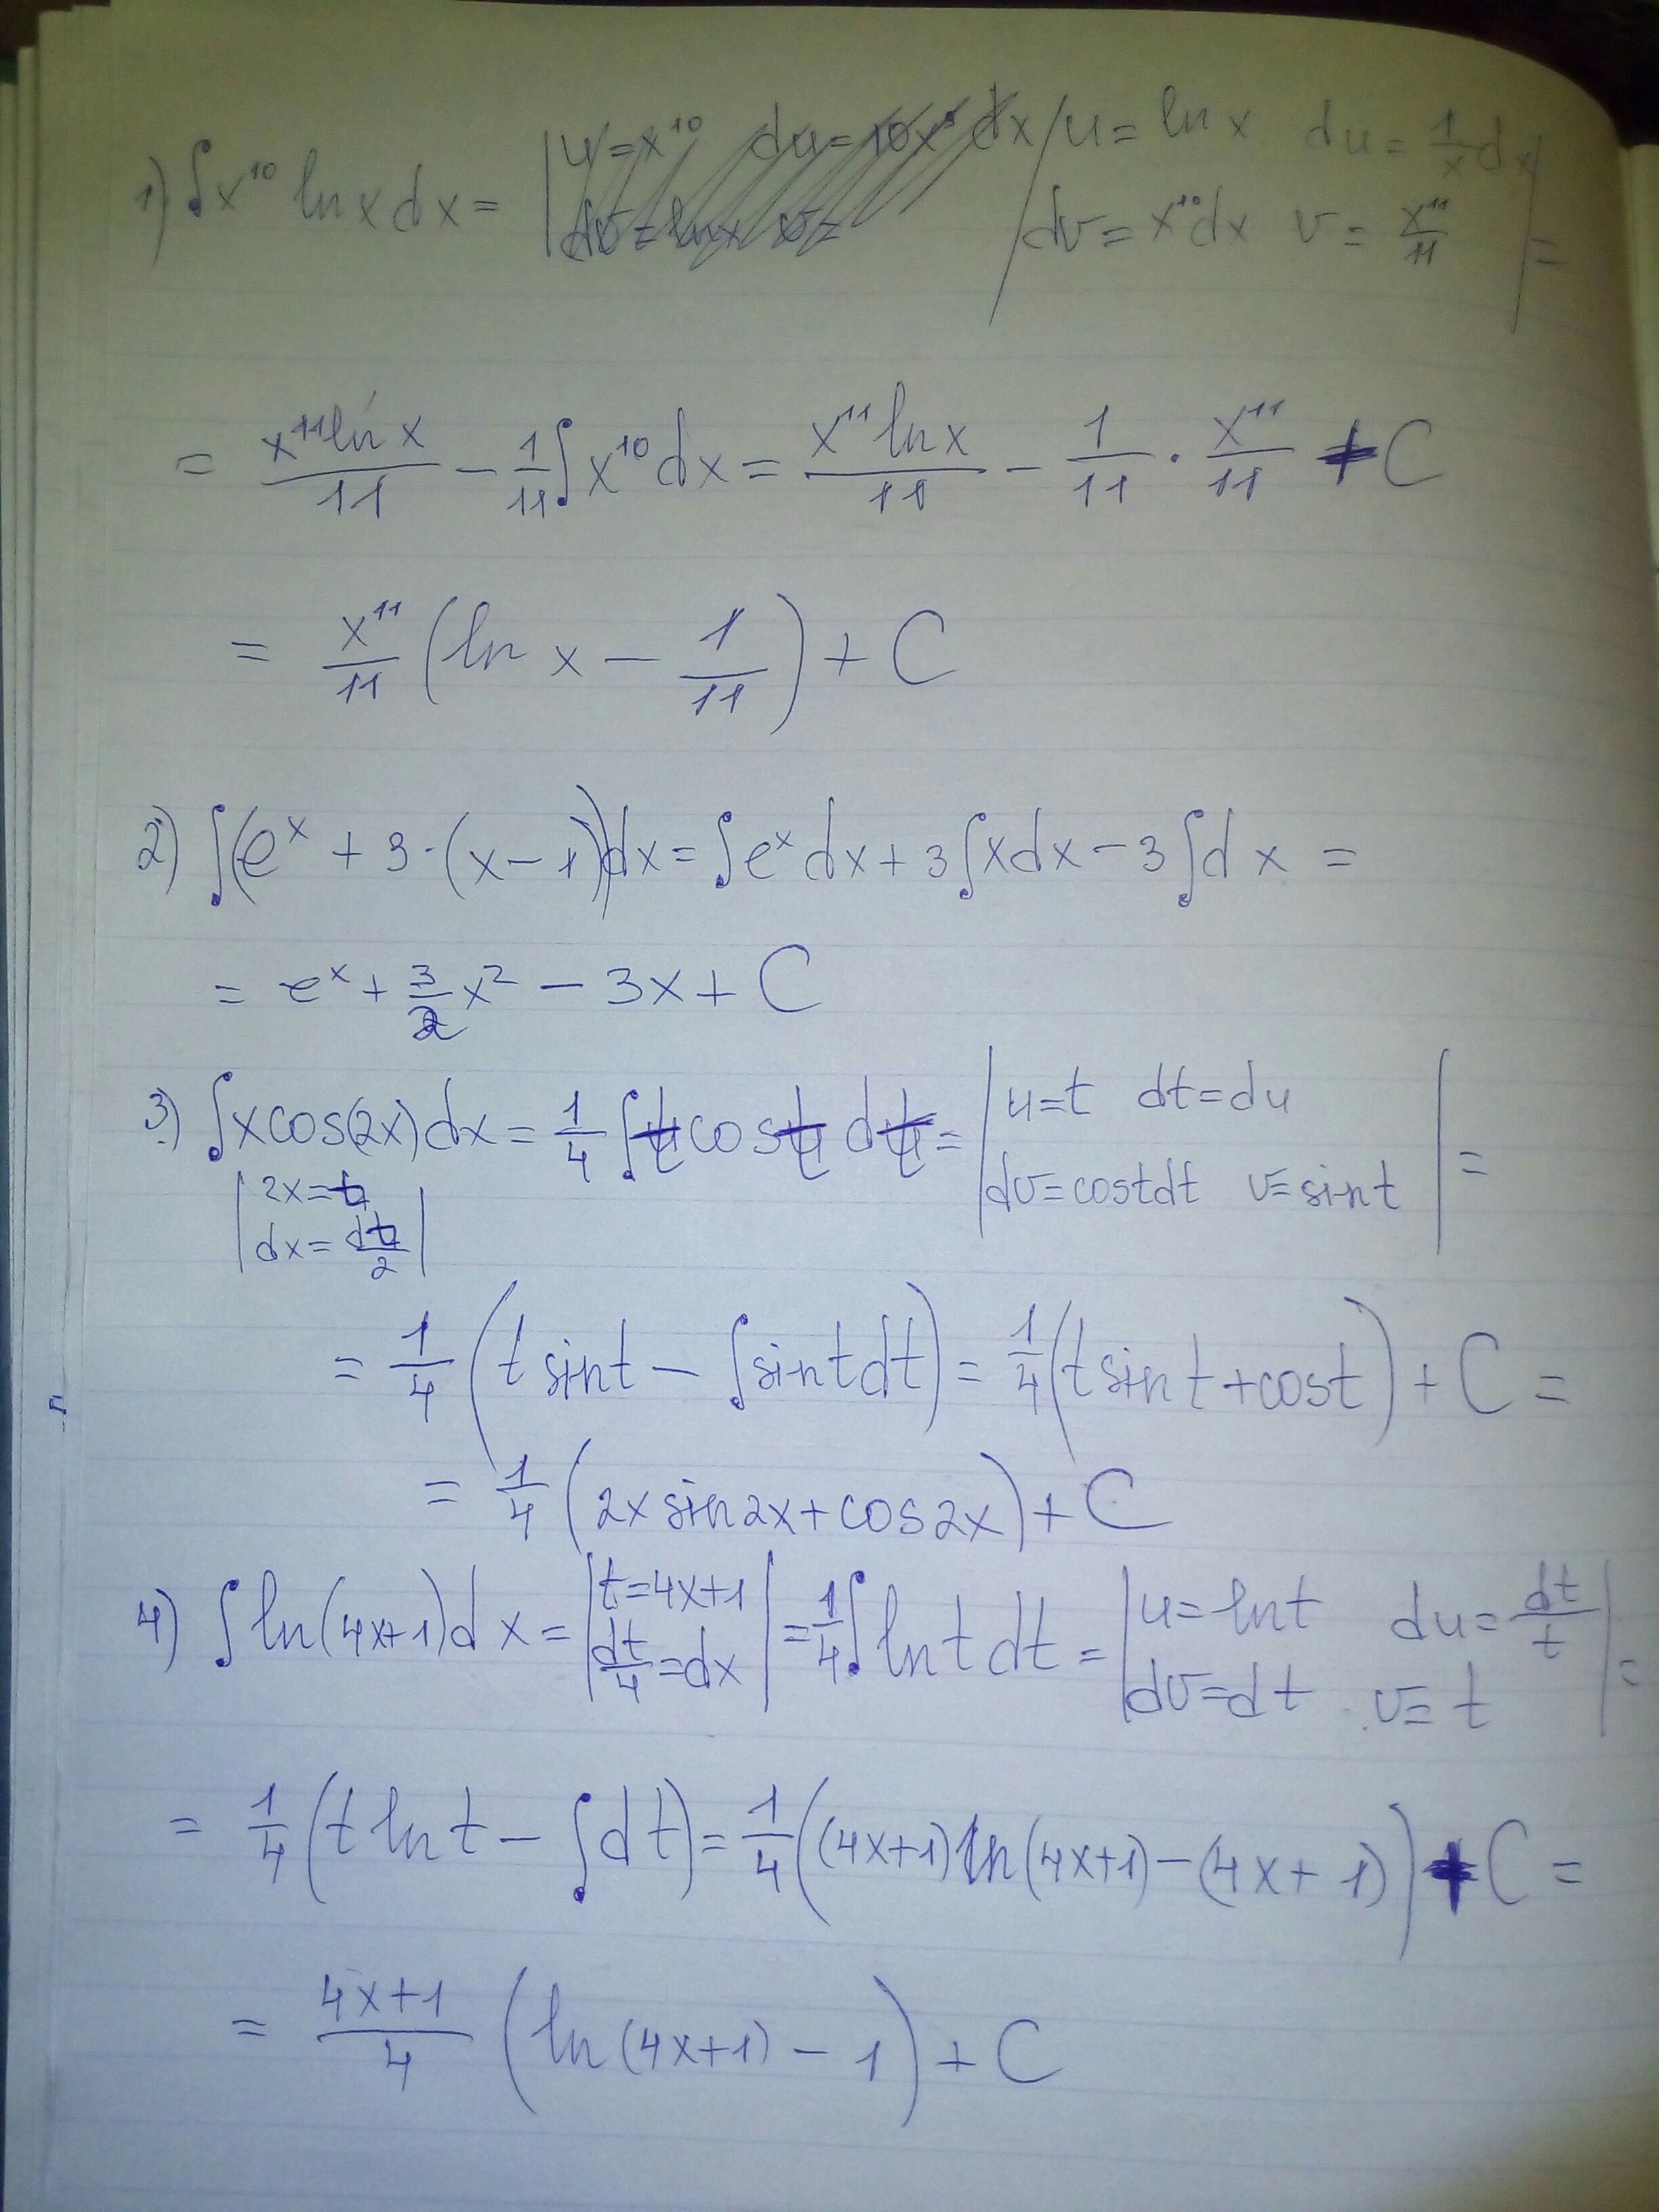 1) ∫x¹⁰ ln x dx = | u = x¹⁰ du = 10x⁹ dx / u = ln x du = 1/x dx |
dv = ln x v = / dv = x¹⁰dx v = x¹¹/11 | =
= x¹¹ ln x / 11 − 1/11 ∫x¹⁰dx = x¹¹ ln x / 11 − 1/11 · x¹¹/11 + C
= x¹¹/11 (ln x − 1/11) + C
2) ∫(eˣ + 3·(x−1))dx = ∫eˣdx + 3∫xdx − 3∫dx =
= eˣ + 3/2 x² − 3x + C
3) ∫xcos(2x)dx = 1/4 ∫t cos t dt = | u=t dt=du
dv=costdt v=sint | =
| 2x=t
dx=dt/2 |
= 1/4 (t sint − ∫sintdt) = 1/4 (tsint+cost) + C =
= 1/4 (2x sin2x+cos2x) + C
4) ∫ln(4x+1)dx = | t=4x+1 | = 1/4 ∫lnt dt = | u=lnt du=dt/t | =
| dt/4=dx | | dv=dt v=t |
= 1/4 (t lnt − ∫dt) = 1/4 ((4x+1)ln(4x+1)−(4x+1)) + C =
= 4x+1/4 (ln(4x+1) − 1) + C